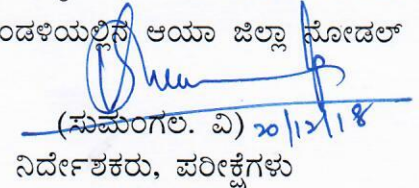 ಂಡಳಿಯಲ್ಲಿನ ಆಯಾ ಜಿಲ್ಲಾ ನೋಡಲ್
(ಸುಮಂಗಲ. ವಿ) 20/12/18
ನಿರ್ದೇಶಕರು, ಪರೀಕ್ಷೆಗಳು